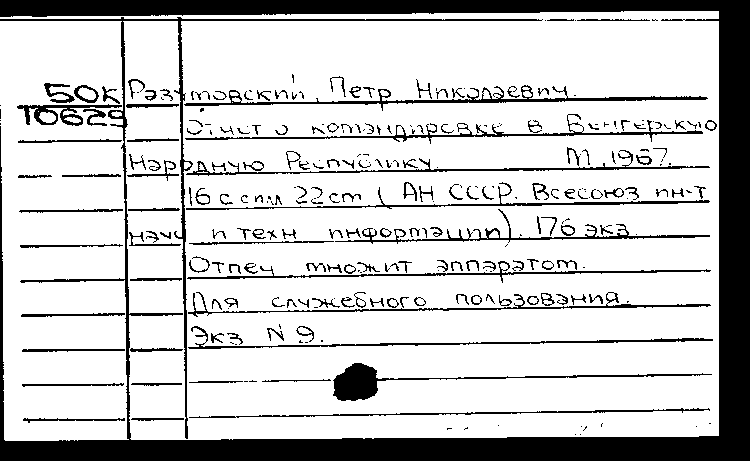 50К Разумовский, Петр Николаевич.
Т0629 Отчет о командировке в Венгерскую
Народную Республику. М., 1967.
16 с. с илл. 22 cm (АН СССР. Всесоюз. ин-т
науч. и техн. информации). 176 экз.
Отпеч. множит. аппаратом.
Для служебного пользования.
Экз. N 9.